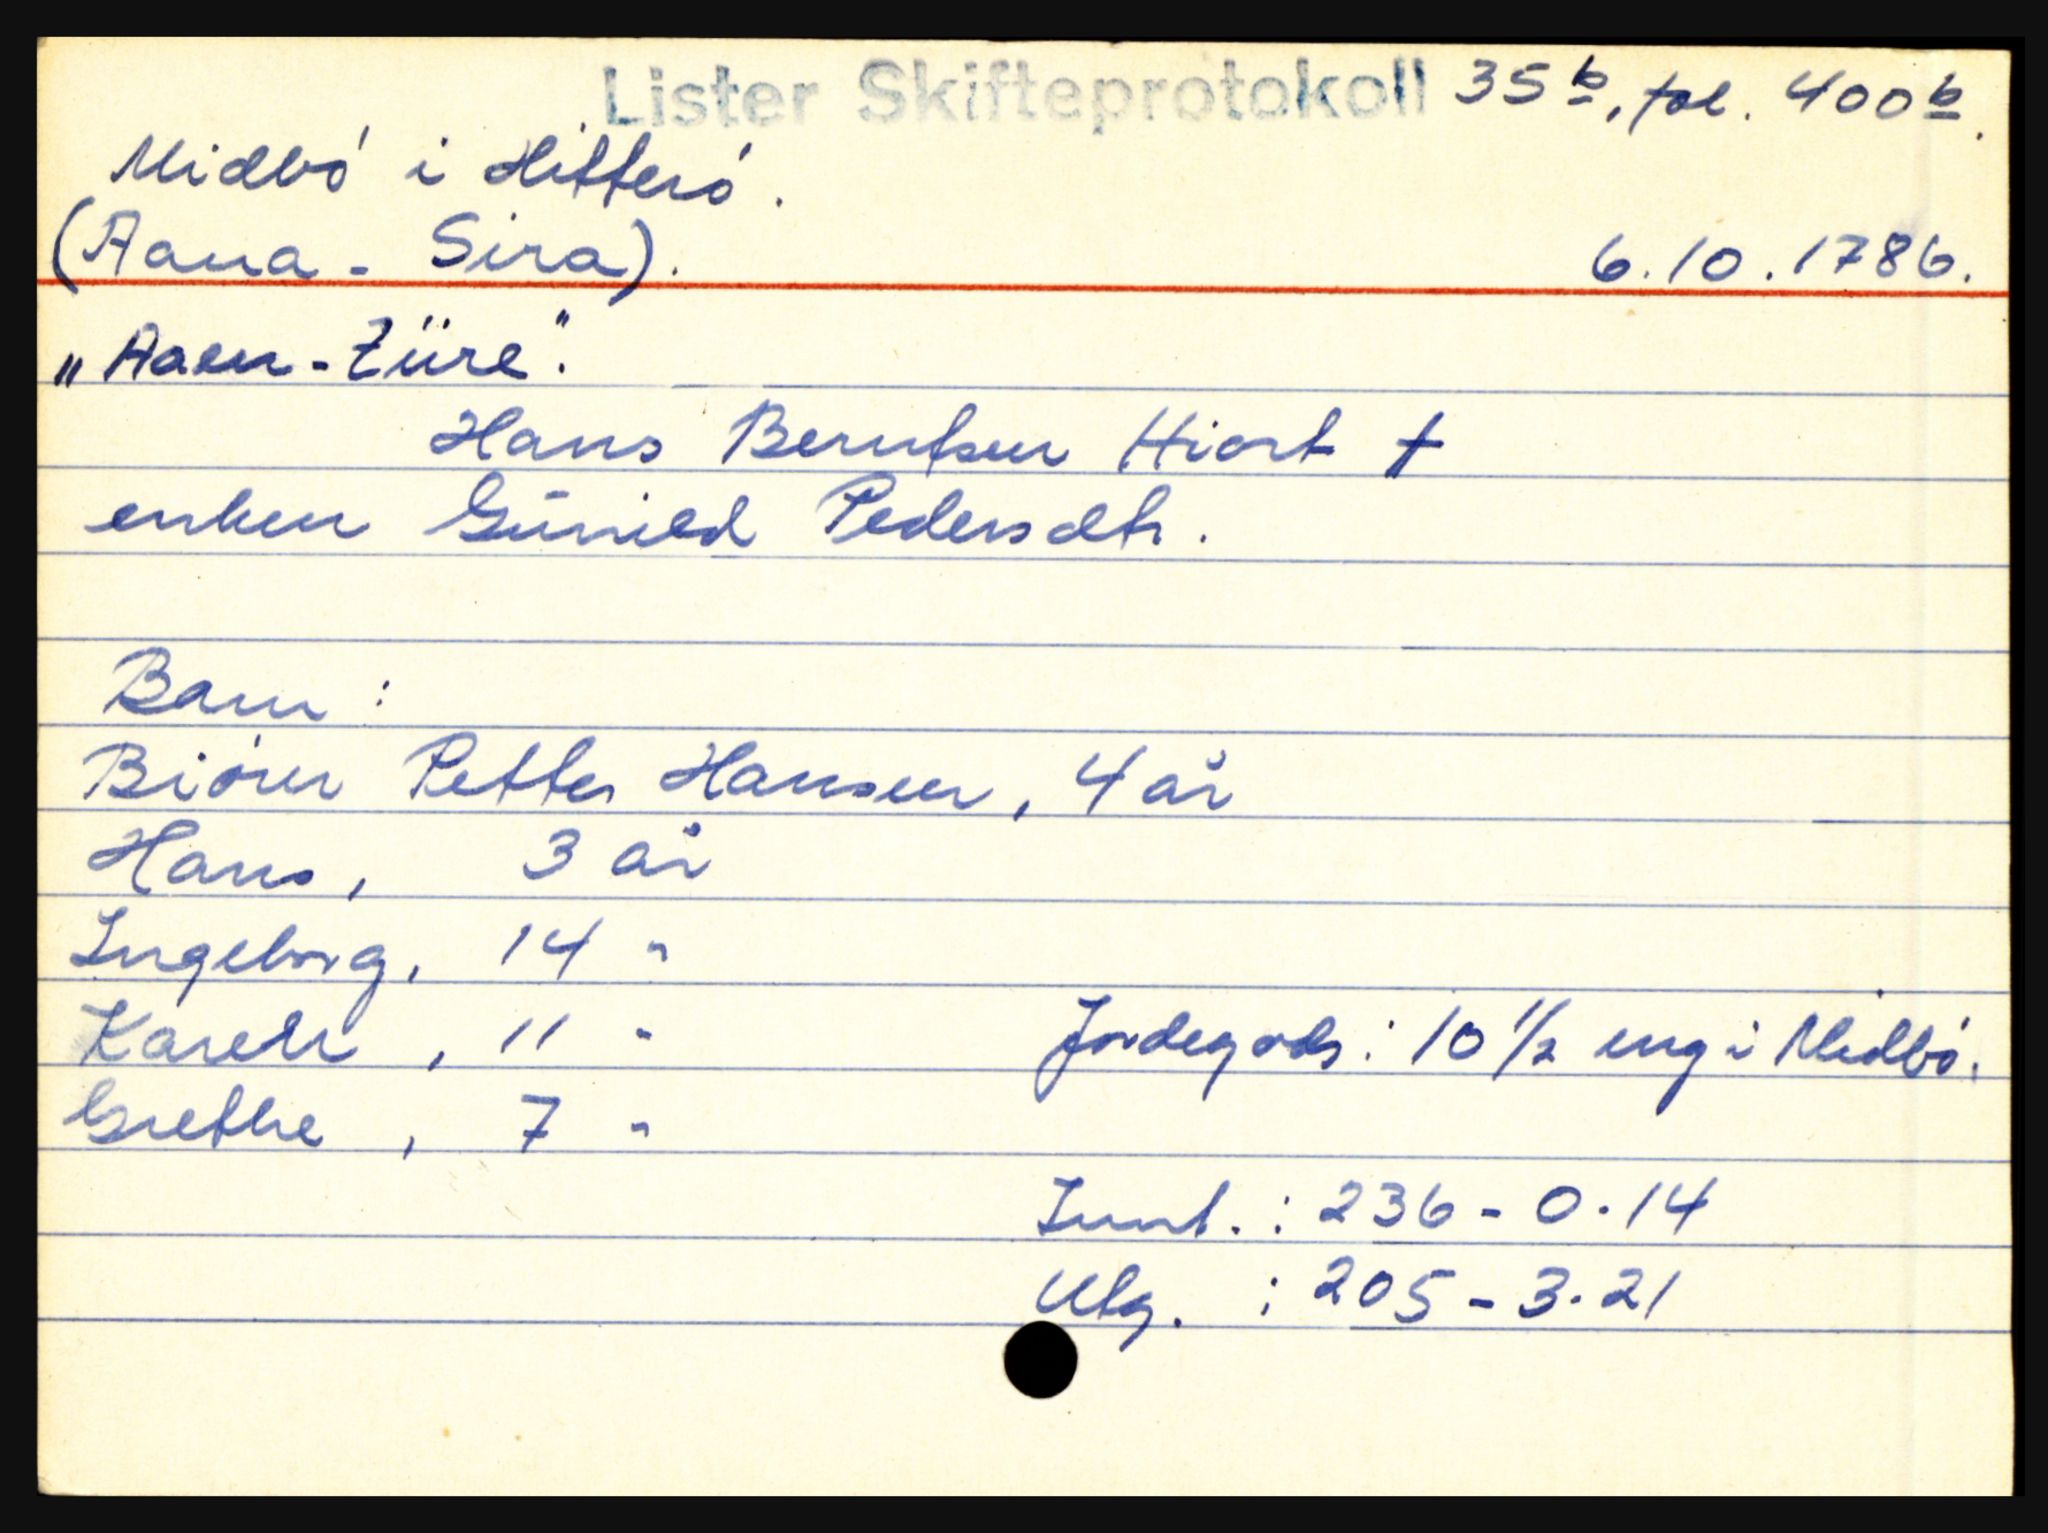 Lister Skifteprotokoll 35b, fol. 400b.
Midbó i Hitteró.
(Aana - Sira).
6.10.1786.
„Aaen-Züre".
Hans Berntsen Hiort †
enken Gúnild Pedersdtr.
Barn :
Biórn Petter Hansen, 4 år
Hans, 3 år
Ingeborg, 14 "
Karen, 11 "
Jordegods: 10 1/2 eng i Midbó.
Grethe, 7 "
Innt. : 236 - 0 - 14
Utg. : 205 - 3 - 21